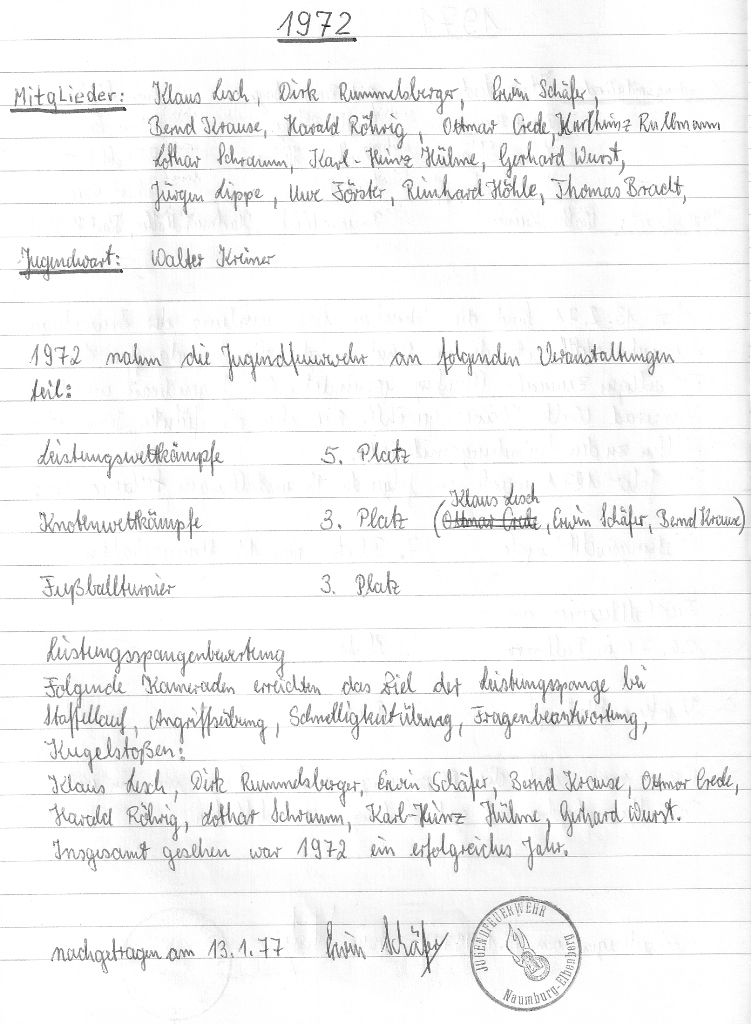 1972
Mitglieder: Klaus Lesch, Dirk Rummelsberger, Erwin Schäfer,
Bernd Krause, Harald Röhrig, Ottmar Crede, Karlheinz Rullmann
Lothar Schramm, Karl-Heinz Hühne, Gerhard Wurst,
Jürgen Lippe, Uwe Förster, Reinhard Höhle, Thomas Bracht,
Jugendwart: Walter Kreiner
1972 nahm die Jugendfeuerwehr an folgenden Veranstaltungen
teil:
Leistungswettkämpfe 5. Platz
Klaus Lesch
Knotenwettkämpfe 3. Platz (Ottmar Crede, Erwin Schäfer, Bernd Krause)
Fußballturnier 3. Platz
Leistungsspangenbewertung
Folgende Kameraden erreichten das Ziel der Leistungsspange bei
Staffellauf, Angriffsübung, Schnelligkeitsübung, Fragenbeantwortung,
Kugelstoßen:
Klaus Lesch, Dirk Rummelsberger, Erwin Schäfer, Bernd Krause, Ottmar Crede,
Harald Röhrig, Lothar Schramm, Karl-Heinz Hühne, Gerhard Wurst.
Insgesamt gesehen war 1972 ein erfolgreiches Jahr.
nachgetragen am 13.1.77 Erwin Schäfer
JUGENDFEUERWEHR
Naumburg-Elbenberg